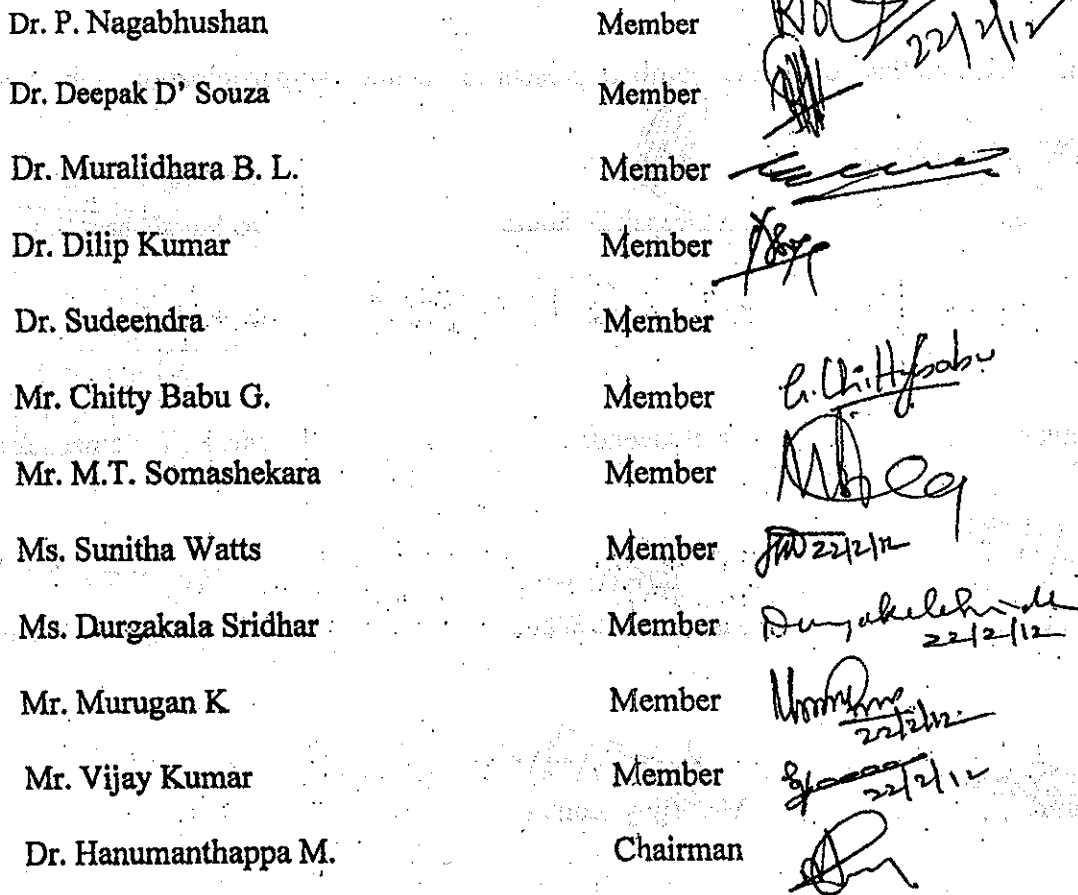 Dr. P. Nagabhushan Member 22/2/12
Dr. Deepak D' Souza Member
Dr. Muralidhara B. L. Member
Dr. Dilip Kumar Member
Dr. Sudeendra Member
Mr. Chitty Babu G. Member G. Chittybabu
Mr. M.T. Somashekara Member
Ms. Sunitha Watts Member 22/2/12
Ms. Durgakala Sridhar Member 22/2/12
Mr. Murugan K Member 22/2/12.
Mr. Vijay Kumar Member 22/2/12
Dr. Hanumanthappa M. Chairman